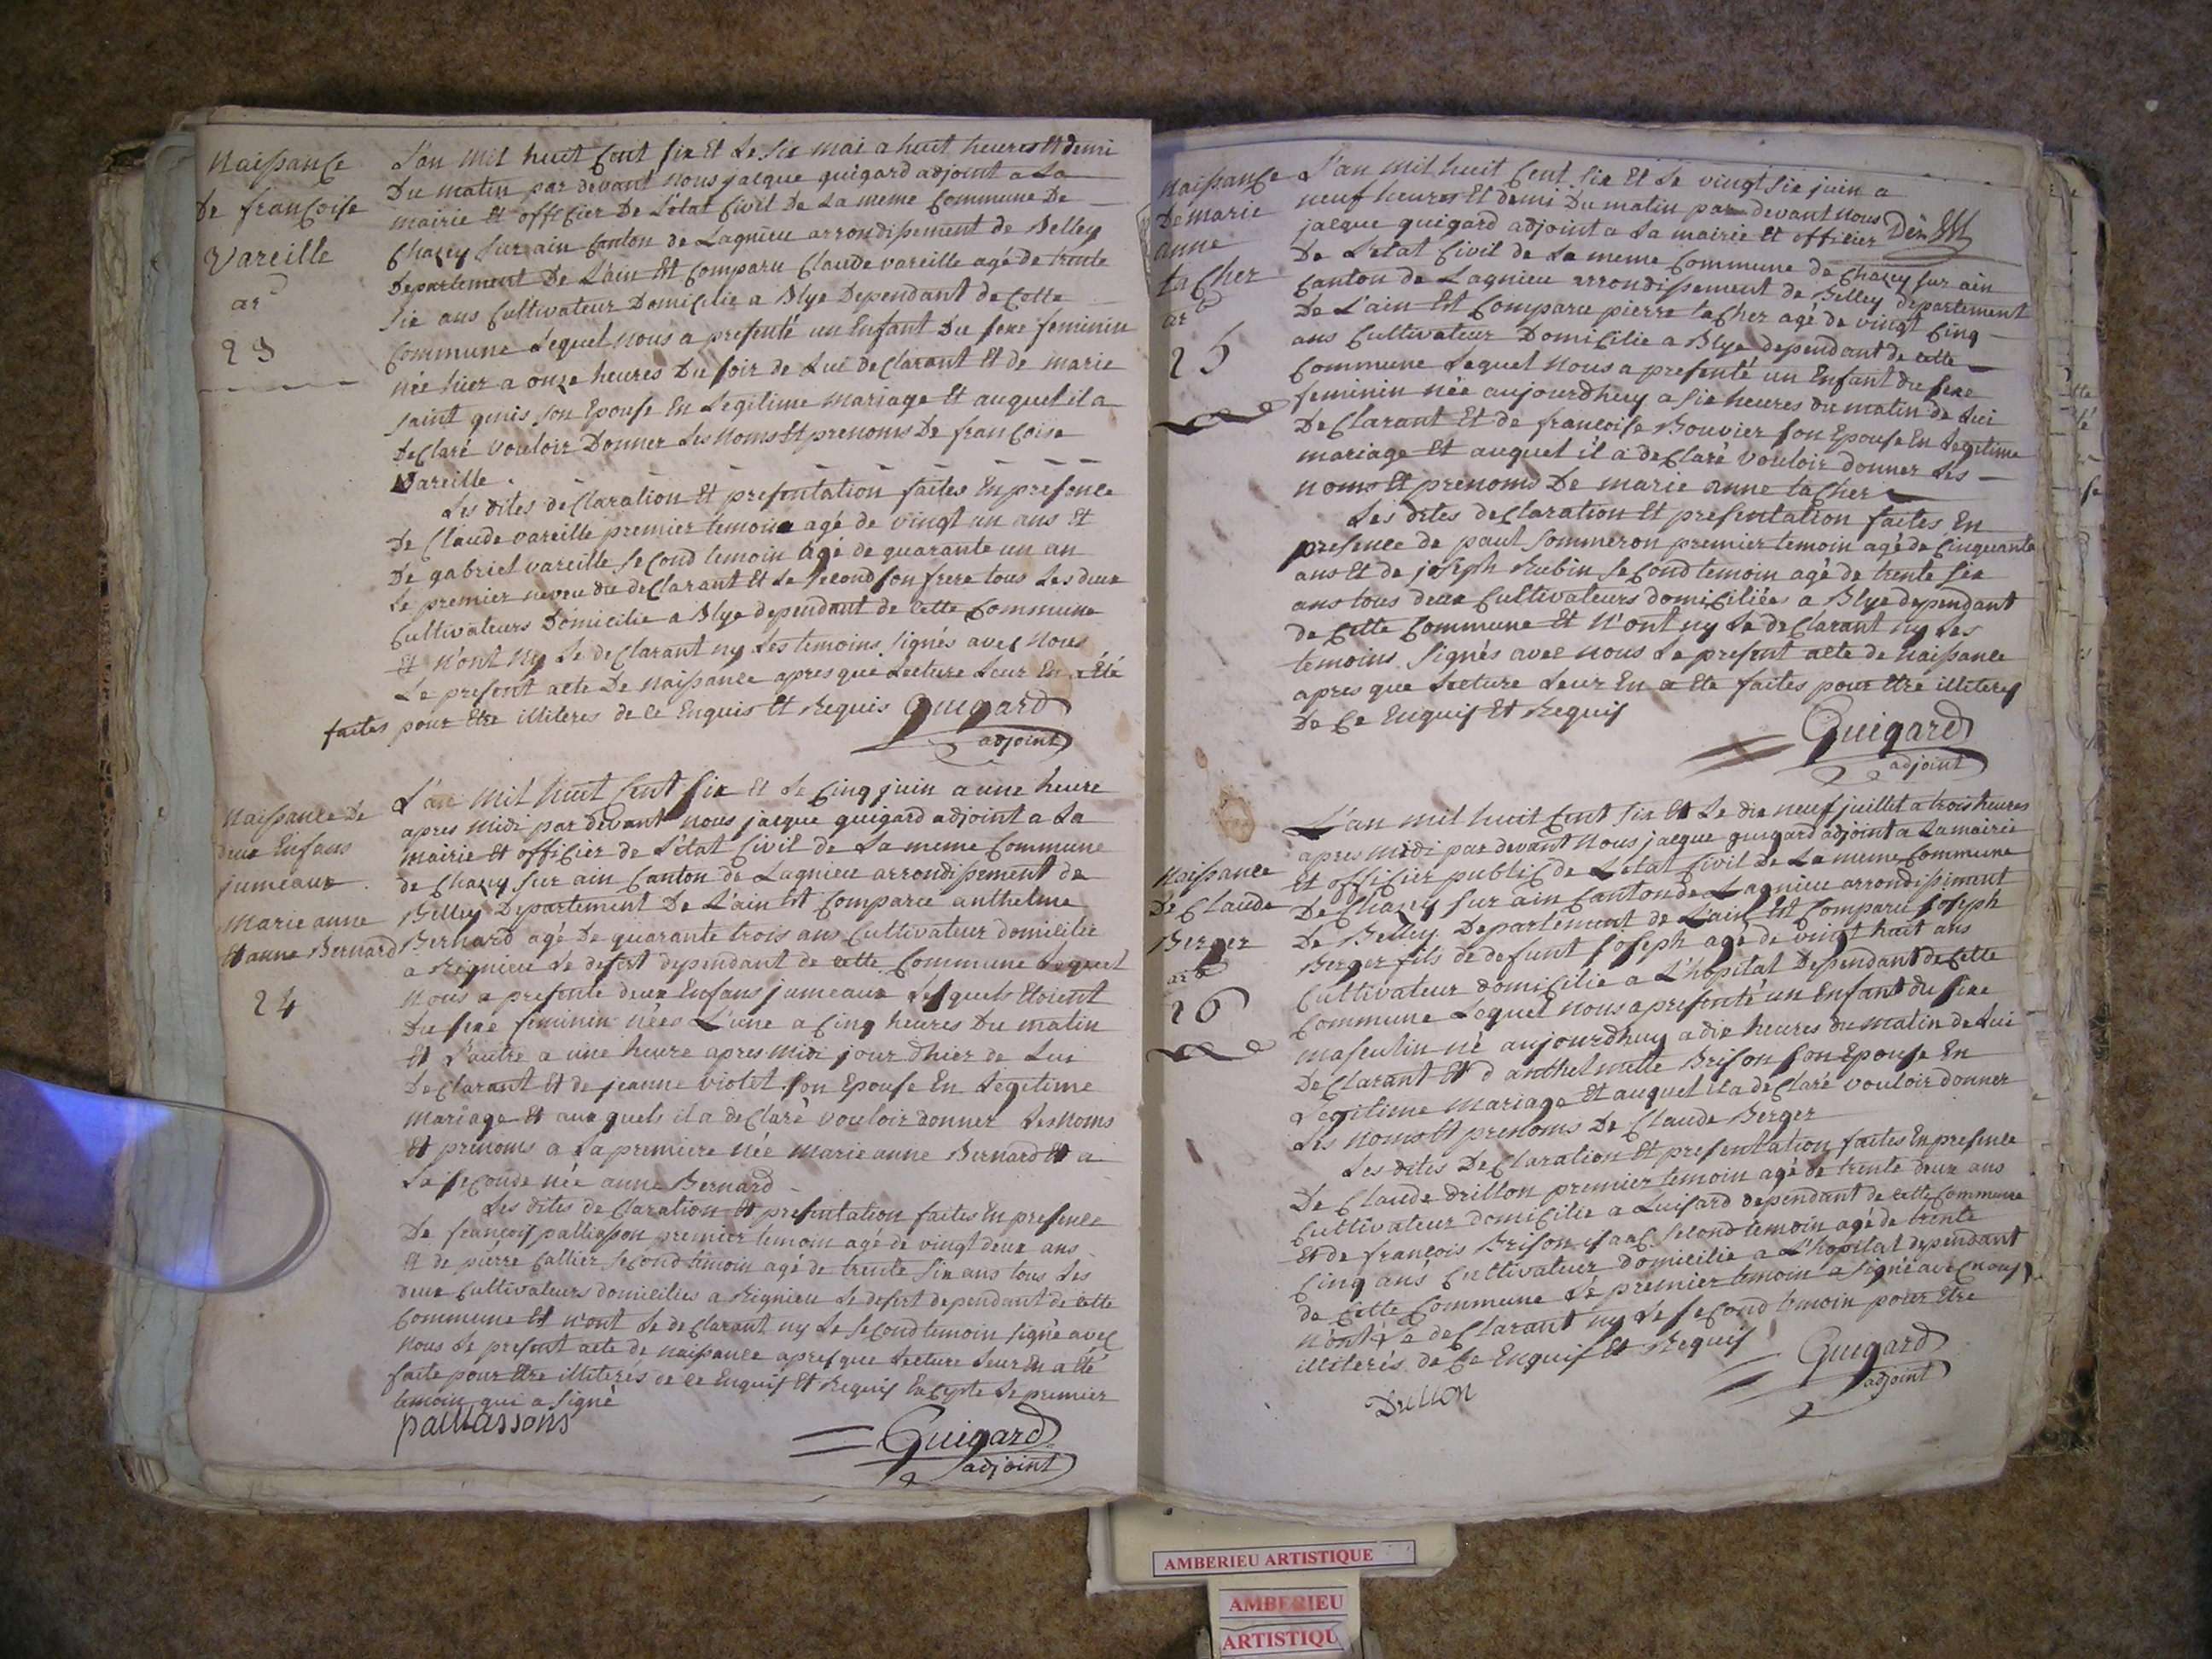 Naissance
De françoise
Vareille
ard
23
L'an mil huit Cent six Et Le Six mai a huit heures Et demi
Du matin par devant nous jacque guigard adjoint a La
mairie Et officier De L'état Civil De La meme Commune De
Chazey sur ain Canton de Lagnieu arrondissement de Belley
Departement De L'ain Est Comparu Claude vareille agé de trente
Six ans Cultivateur Domicilié a Blye Dependant de Cette
Commune Lequel nous a presenté un Enfant Du sexe feminin
née hier a onze heures Du soir de Lui deClarant Et de marie
saint genis son Epouse En Legitime mariage Et auquel il a
deClaré vouloir Donner Les noms Et prenoms De françoise
Vareille.
Les dites deClaration Et presentation faites En presence
De Claude vareille premier temoin agé de vingt un ans Et
De gabriel vareille seCond temoin agé de quarante un an
Le premier neveu du deClarant Et Le second son frere tous Les deux
Cultivateurs Domicilié a Blye dependant de cette Commune
Et n'ont ny Le deClarant ny Les temoins signés avec nous
Le present acte De naissance apres que Lecture Leur En a Eté
faites pour Etre illiteres de ce Enquis Et Requis Guigard
adjoint
Naissance De
deux Enfans
jumeaux
Marie anne
Et anne Bernard
24
L'an mil huit Cent six Et Le Cinq juin a une heure
apres midi par devant nous jacque guigard adjoint a La
mairie Et offiCier de L'état Civil de La meme Commune
de Chazey sur ain Canton de Lagnieu arrondissement de
Belley Departement De L'ain Est Comparu anthelme
Bernard agé De quarante trois ans Cultivateur domicilié
a Rignieu Le desert dependant de cette Commune Lequel
nous a presenté deux Enfans jumeaux Lesquels Etoient
Du sexe feminin nées L'une a Cinq heures Du matin
Et L'autre a une heure apres midi jour dhier de Lui
DeClarant Et de jeanne violet son Epouse En Legitime
Mariage Et aux quels il a deClaré vouloir donner Les noms
Et prenoms a La premiere née marie anne Bernard Et a
La seConde née anne Bernard
Les dites deClaration Et presentation faites En presence
De françois palliasson premier temoin agé de vingt deux ans
Et de pierre Callier seCond temoin agé de trente six ans tous Les
deux Cultivateurs domiciliés a Rignieu Le desert dependant de cette
Commune Et n'ont Le deClarant ny Le seCond temoin signé avec
nous Le present acte de naissance apres que Lecture Leur En a Eté
faite pour Etre illiterés de ce Enquis Et Requis ExCepte Le premier
temoin qui a signé
palliassons
Guigard
adjoint
Naissance
De marie
anne
taCher
ard
25
L'an mil huit Cent six Et Le vingt six juin a
neuf heures Et demi Du matin par devant nous
jacque guigard adjoint a La mairie Et officier
De L'etat Civil de La meme Commune de Chazey sur ain
Canton de Lagnieu arrondissement de Belley departement
De L'ain Est Comparu pierre taCher agé de vingt Cinq
ans Cultivateur Domicilié a Blye dependant de cette
Commune Lequel nous a presenté un Enfant du sexe
feminin née aujourdhuy a six heures du matin de Lui
DeClarant Et de françoise Bouvier son Epouse En Legitime
mariage Et auquel il a deClaré vouloir donner Les
noms Et prenoms De marie anne taCher
Les dites deClaration Et presentation faites En
presence de paul sommeron premier temoin agé de Cinquante
ans Et de joseph Rubin seCond temoin agé de trente six
ans tous deux Cultivateurs domiCiliées a Blye dependant
de Cette Commune Et n'ont ny Le deClarant ny Les
temoins signés avec nous Le present acte de naissance
apres que Lecture Leur En a Ete faites pour Etre illiteres
De Ce Enquis Et Requis
Guigard
adjoint
Naissance
De Claude
Berger
ard
26
L'an mil huit Cent six Et Le dix neuf juillet a trois heures
apres midi par devant nous jacque guigard adjoint a La mairie
Et officier public de L'etat Civil De La meme Commune
De Chazey sur ain Canton de Lagnieu arrondissement
De Belley Departement de L'ain Est Comparu joseph
Berger fils de defunt joseph agé de vingt huit ans
Cultivateur domiCilié a L'hopital Dependant de Cette
Commune Lequel nous a presenté un Enfant du sexe
masculin né aujourdhuy a dix heures du matin de Lui
DeClarant Et d'anthelmette Brison son Epouse En
Legitime mariage Et auquel il a deClaré vouloir donner
Les noms Et prenoms De Claude Berger
Les dites DeClaration Et presentation faites En presence
De Claude drillon premier temoin agé de trente deux ans
Cultivateur domiCilié a Luisard dependant de cette Commune
Et de françois Brison isaac second temoin agé de trente
Cinq ans Cultivateur domicilié a L'hopital dependant
de Cette Commune Le premier temoin a signé avec nous
n'ont Le deClarant ny Le seCond temoin pour Etre
illiterés de Ce Enquis Et Requis
Guigard
adjoint
Drillon
AMBERIEU ARTISTIQUE
AMBERIEU
ARTISTIQU